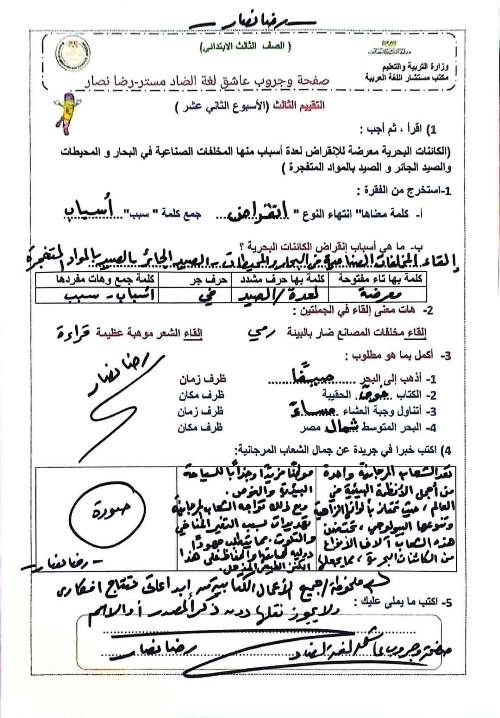 رضا نصار
( الصف الثالث الابتدائي )
وزارة التربية والتعليم
مكتب مستشار اللغة العربية
صفحة وجروب عاشق لغة الضاد مستر-رضا نصار
التقييم الثالث (الأسبوع الثاني عشر )
1) اقرأ ، ثم أجب :
(الكائنات البحرية معرضة للإنقراض لعدة أسباب منها المخلفات الصناعية في البحار و المحيطات
والصيد الجائر و الصيد بالمواد المتفجرة )
1-استخرج من الفقرة :
أ- كلمة معناها" انتهاء النوع " انقراض جمع كلمة " سبب" أسباب
ب- ما هي أسباب إنقراض الكائنات البحرية ؟
إلقاء المخلفات الصناعية في البحار والمحيطات - الصيد الجائر بالصيد بالمواد المتفجرة
كلمة بها تاء مفتوحة كلمة بها حرف مشدد حرف جر كلمة جمع وهات مفردها
معرضة لعدة / الصيد في أسباب - سبب
2- هات معنى إلقاء في الجملتين :
إلقاء مخلفات المصانع ضار بالبيئة رمي إلقاء الشعر موهبة عظيمة قراءة
3- أكمل بما هو مطلوب :
رضا نصار
1- أذهب إلى البحر صيفًا ظرف زمان
2- الكتاب فوق الحقيبة ظرف مكان
3- أتناول وجبة العشاء مساءً ظرف زمان
4- البحر المتوسط شمال مصر ظرف مكان
4) اكتب خبرا في جريدة عن جمال الشعاب المرجانية:
تعد الشعاب المرجانية واحدة
من أجمل الأنظمة البيئية في
العالم، حيث تمتاز بألوانها الزاهية
وتنوعها البيولوجي، تحتضن
هذه الشعاب آلاف الأنواع
من الكائنات البحرية، مما يجعلها
موقعًا فريدًا وجذابًا للسياحة
البيئية والغوص.
مع ذلك تواجه الشعاب المرجانية
تهديدات بسبب التغير المناخي
والتلوث، مما يتطلب جهودًا
دولية لحمايتها والحفاظ على هذا
الكنز الطبيعي المذهل.
صورة
رضا نصار
ملحوظة/ جميع الأعمال الكتابية من إبداعاتي ونتاج أفكاري
ولا يجوز نقلها دون ذكر المصدر أو الاسم
5- اكتب ما يملى عليك :
صفحة وجروب عاشق لغة الضاد رضا نصار